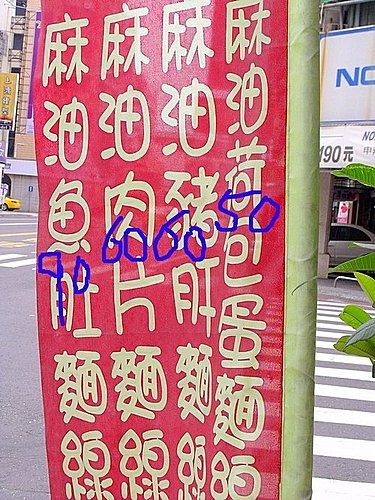 麻油荷包蛋麵線
麻油豬肝麵線
麻油肉片麵線
麻油魚肚麵線
50
60
60
90
NO
190元